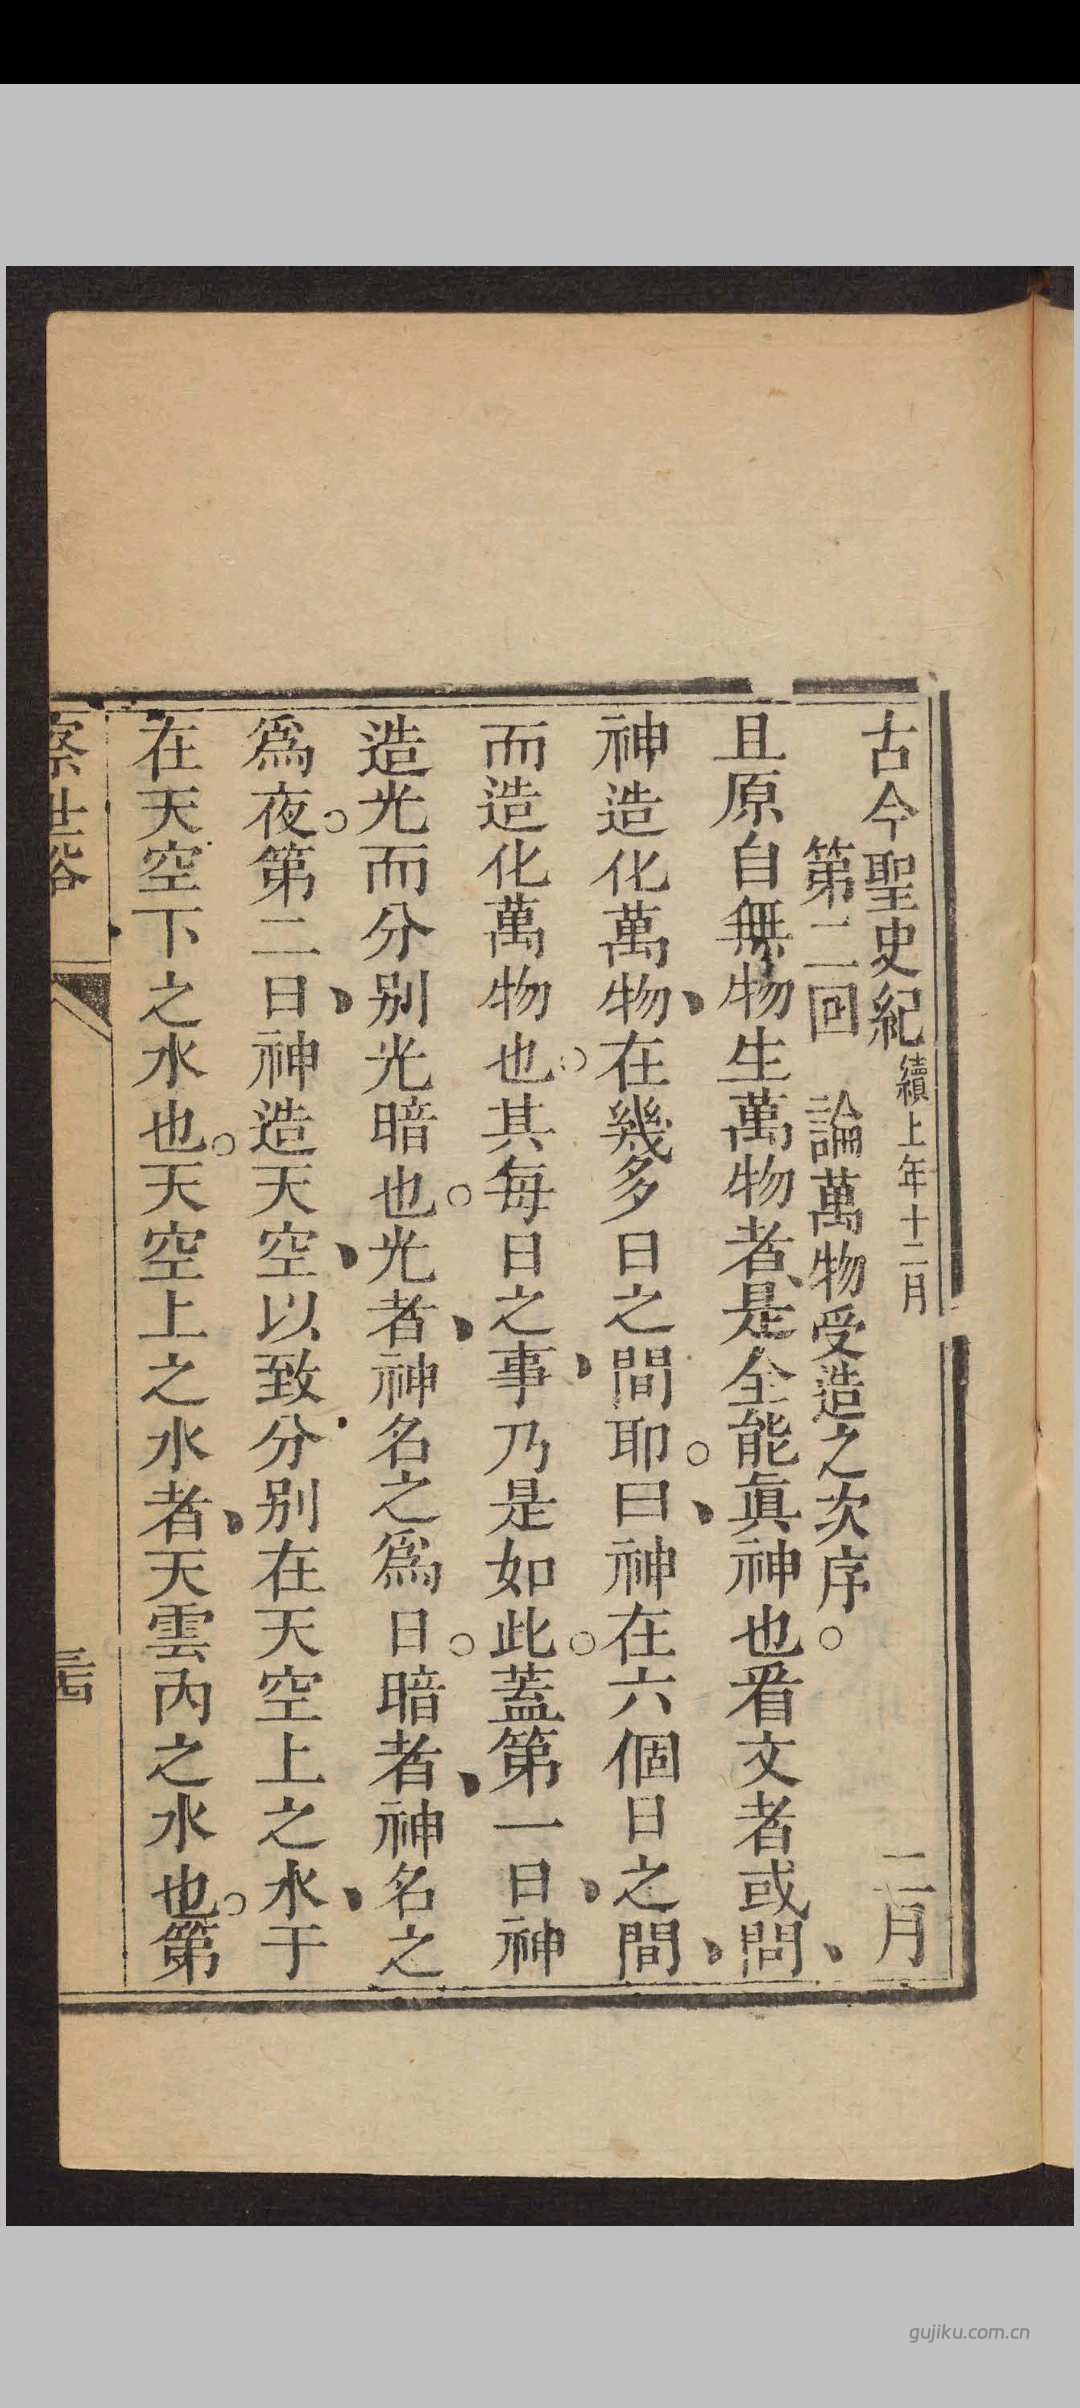 古今聖史紀 續上年十二月 二月
第二回 論萬物受造之次序。
且原自無物生萬物者、是全能眞神也看文者或問、
神造化萬物、在幾多日之間耶。曰、神在六個日之間、
而造化萬物也。其每日之事、乃是如此。蓋第一日、神
造光而分别光暗也。光者、神名之爲日。暗者、神名之
爲夜。第二日、神造天空、以致分别在天空上之水、于
在天空下之水也。天空上之水者、天雲內之水也。第
察世俗
gujiku.com.cn